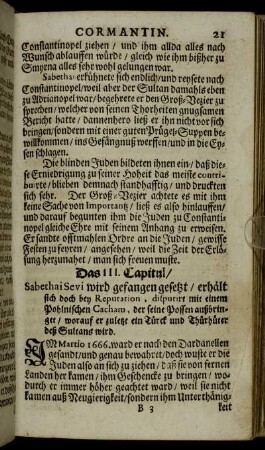 CORMANTIN. 21
Constantinopel ziehen / und ihm allda alles nach
Wunsch ablauffen würde / gleich wie ihm bißher zu
Smyrna alles sehr wohl gelungen war.
Sabetha; erkühnete sich endlich/ und reysete nach
Constantinopel/ weil aber der Sultan damahls eben
zu Adrianopel war/ begehrete er den Groß-Vezier zu
sprechen/ welcher von seinen Thorheiten gnugsamen
Bericht hatte / dannenhero ließ er ihn nicht vor sich
bringen/ sondern mit einer guten Prügel-Suppen be-
willkommen / ins Gefängnuß werffen/ und in die Ey-
sen schlagen.
Die blinden Juden bildeten ihnen ein/ daß die-
se Erniedrigung zu seiner Hoheit das meiste contri-
buirte / blieben demnach standhafftig / und druckten
sich sehr. Der Groß-Vezier achtete es mit ihm
keine Sache von Importantz/ ließ es also hinlauffen/
und darauf begunten ihm die Juden zu Constanti-
nopel gleiche Ehre mit seinem Anhang zu erweisen.
Er sandte offtmahlen Ordre an die Juden / gewisse
Festen zu feyren / angesehen / weil die Zeit der Erlö-
sung herzunahet / man sich freuen muste.
Das III. Capitul/
Sabethai Sevi wird gefangen gesetzt / erhält
sich doch bey Reputation, disputirt mit einem
Pohlnischen Cacham, der seine Possen außbrin-
get / worauf er zuletzt ein Türck und Thürhüter
deß Sultans wird.
IM Martio 1666. ward er nach den Dardanellen
gesandt/ und genau bewahret/ doch wuste er die
Juden also an sich zu ziehen / daß sie von fernen
Landen her kamen / ihm Geschencke zu bringen / wo-
durch er immer höher geachtet ward / weil sie nicht
kamen auß Neugierigkeit/ sondern ihm Unterthänig-
B 3 keit